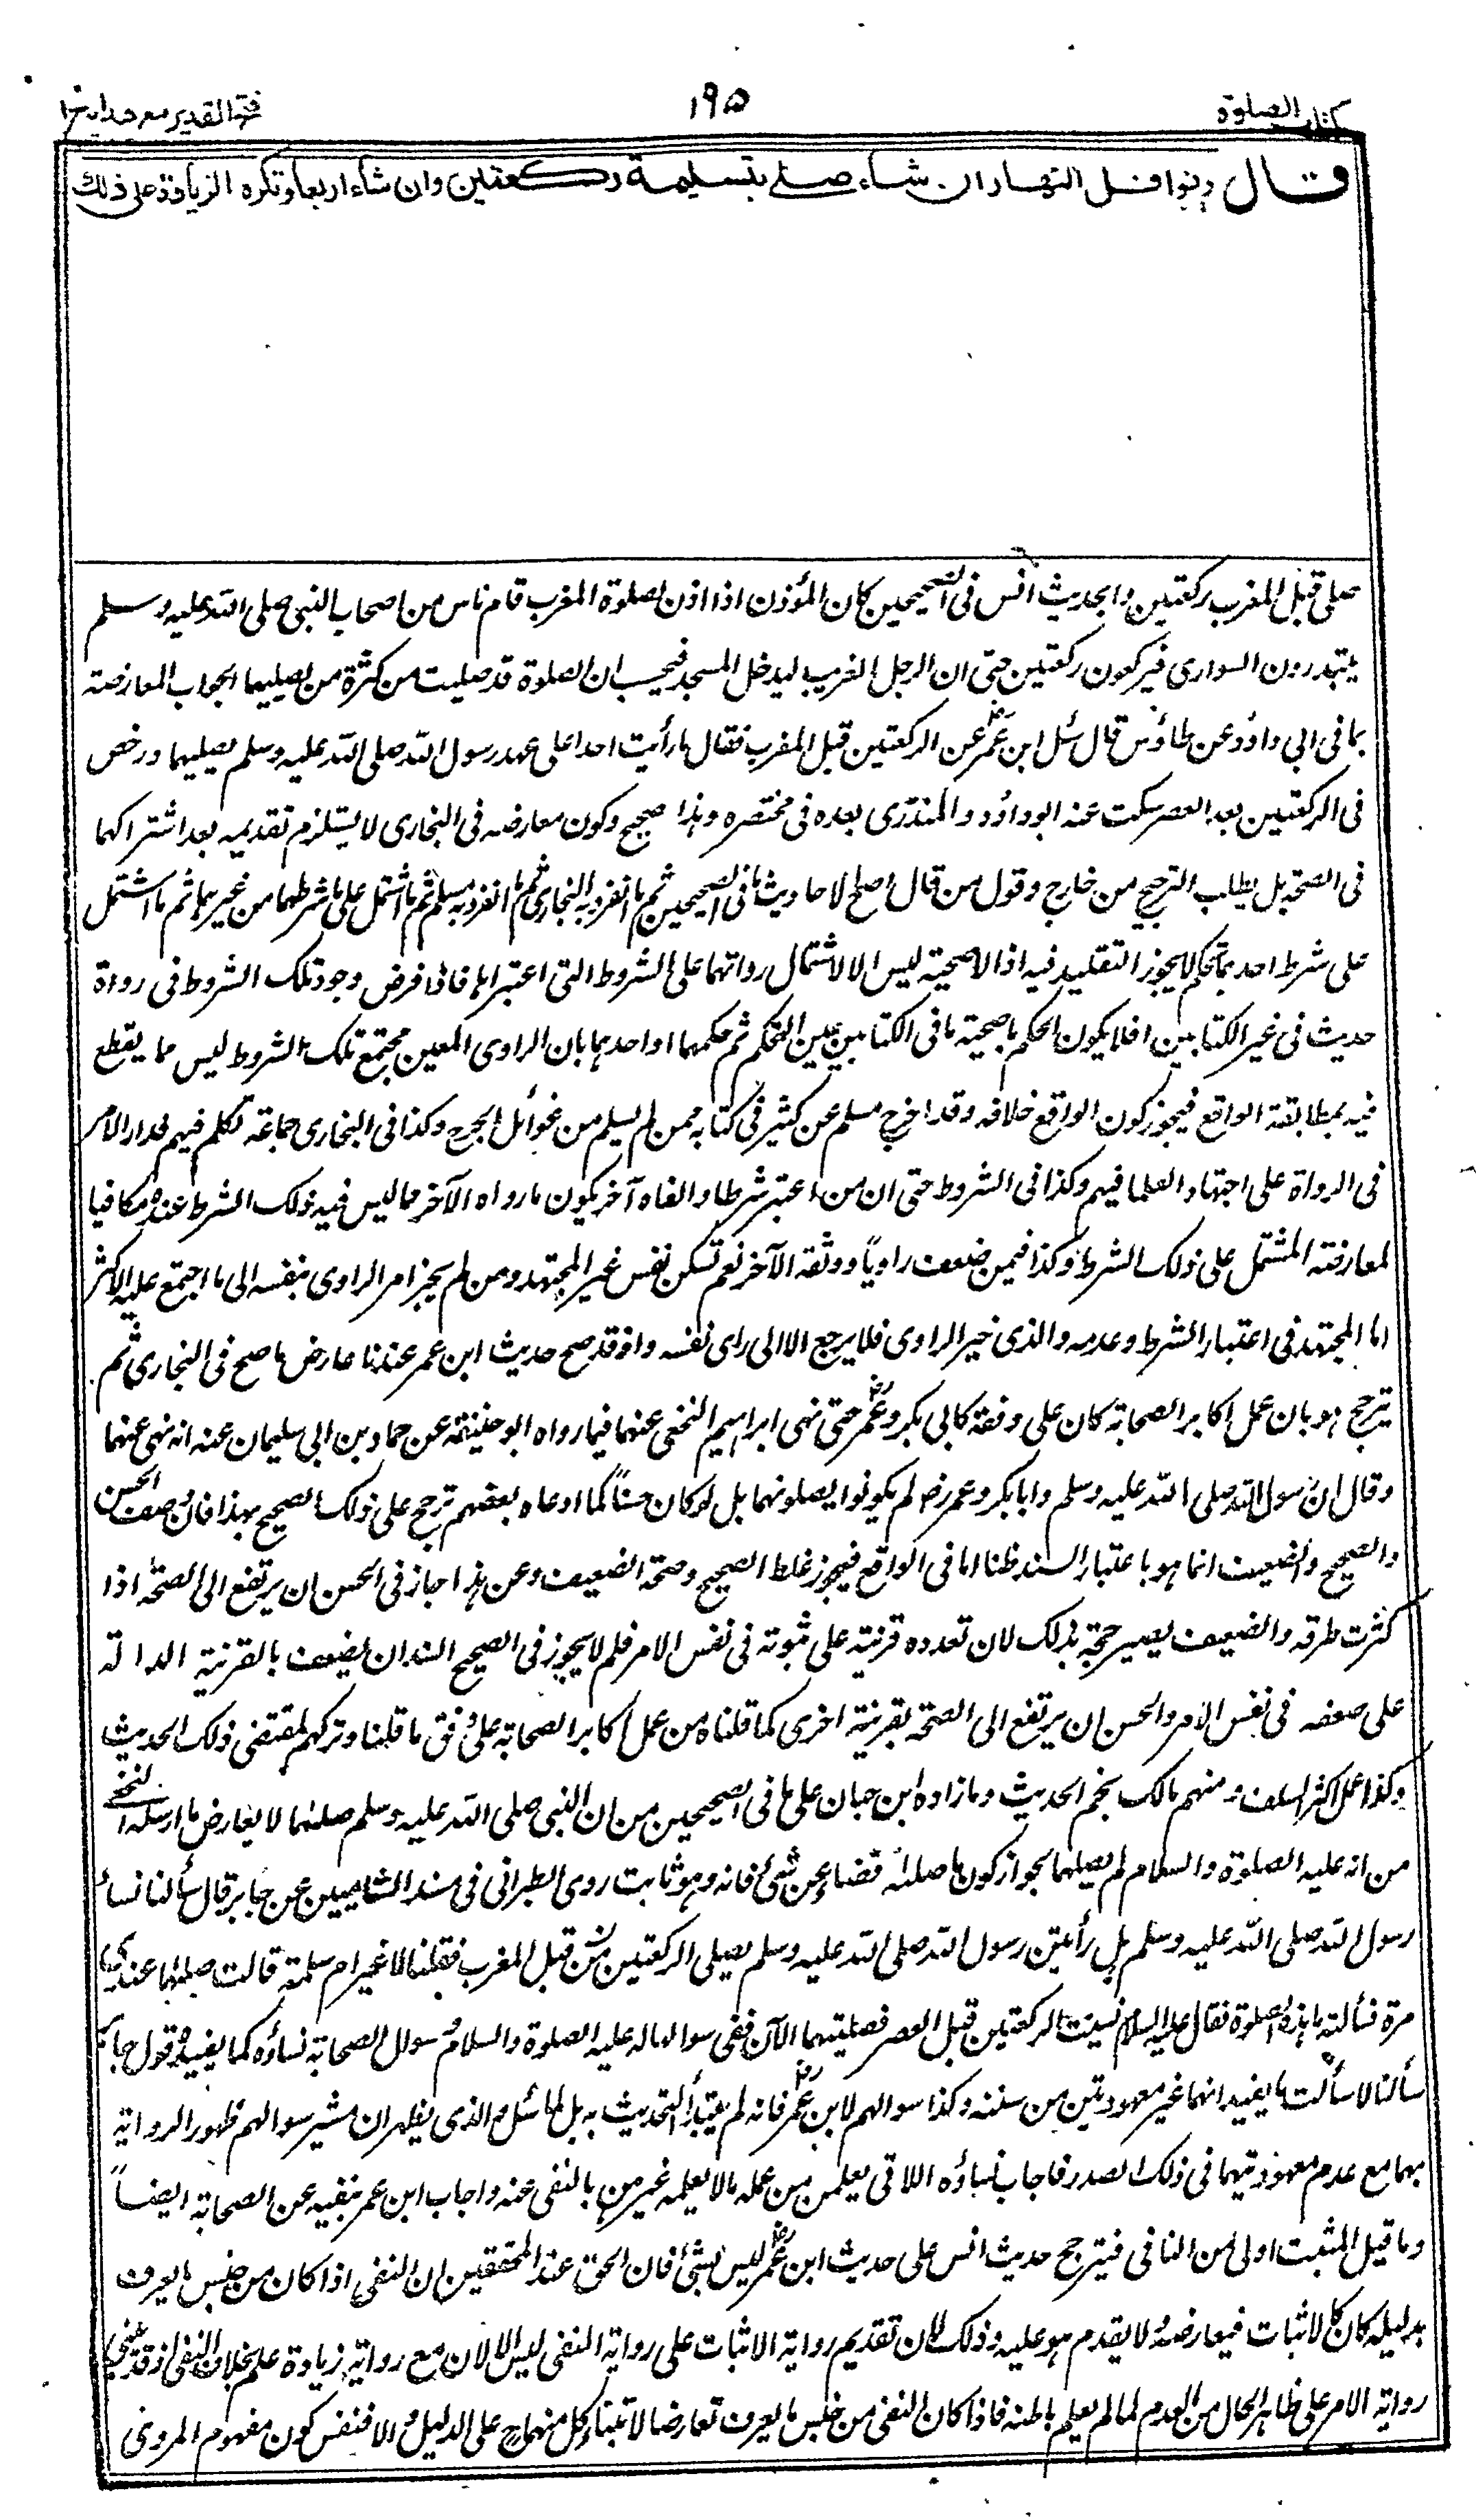 كتاب الصلوة
١٩٥
فتح القدير مع هدايه ج ١
قال ونوافل النهار ان شاء صلے بتسليمة ركعتين وان شاء اربعا وتكره الزيادة على ذلك
صلى قبل المغرب ركعتين والحديث انس فى الصحيحين كان المؤذن اذا اذن لصلوة المغرب قام ناس من اصحاب النبى صلى الله عليه وسلم
يبتدرون السوارى فيركعون ركعتين حتى ان الرجل الغريب ليدخل المسجد فيحسب ان الصلوة قد صليت من كثرة من يصليهما الجواب المعارضة
بما فى ابى داؤد عن طاؤس قال سئل ابن عمر رض عن الركعتين قبل المغرب فقال ما رأيت احدا على عهد رسول الله صلى الله عليه وسلم يصليهما ورخص
فى الركعتين بعد العصر سكت عنه ابو داؤد والمنذرى بعده فى مختصره وهذا صحيح وكون معارضه فى البخارى لا يستلزم تقديمه بعد اشتراكهما
فى الصحة بل يطلب الترجيح من خارج وقول من قال اصح الاحاديث ما فى الصحيحين ثم ما انفرد به البخارى ثم ما انفرد به مسلم ثم ما اشتمل على شرطهما من غيرهما ثم ما اشتمل
على شرط احدهما تحكم لا يجوز التقليد فيه اذ الاصحية ليس الا لاشتمال رواتهما على الشروط التى اعتبراها فاذا فرض وجود تلك الشروط فى رواة
حديث فى غير الكتابين افلا يكون الحكم باصحية ما فى الكتابين عين التحكم ثم حكمهما او احدهما بان الراوى المعين مجتمع تلك الشروط ليس مما يقطع
فيه بمطابقة الواقع فيجوز كون الواقع خلافه وقد اخرج مسلم عن كثير فى كتابه ممن لم يسلم من غوائل الجرح وكذا فى البخارى جماعة تكلم فيهم فدار الامر
فى الرواة على اجتهاد العلما فيهم وكذا فى الشروط حتى ان من اعتبر شرطا والغاه آخر يكون ما رواه الآخر مما ليس فيه ذلك الشرط عنده مكافيا
لمعارضة المشتمل على ذلك الشرط وكذا فيمن ضعف راوياً ووثقه الآخر نعم تسكن نفس غير المجتهد ومن لم يخبر امر الراوى بنفسه الى ما اجتمع عليه الاكثر
اما المجتهد فى اعتبار الشرط وعدمه والذى خبر الراوى فلا يرجع الا الى راى نفسه واذ قد صح حديث ابن عمر عندنا عارض ما صح فى البخارى ثم
يترجح هو بان عمل اكابر الصحابة كان على وفقه كابى بكر وعمر رض حتى نهى ابراهيم النخعى عنهما فيما رواه ابو حنيفة عن حماد بن ابى سليمان عنه انه نهى عنهما
وقال ان رسول الله صلى الله عليه وسلم وابا بكر وعمر رض لم يكونوا يصلونهما بل لو كان حسناً كما ادعاه بعضهم ترجح على ذلك الصحيح بهذا فان وصف الحسن
والصحيح والضعيف انما هو باعتبار السند ظنا اما فى الواقع فيجوز غلط الصحيح وصحة الضعيف وعن هذا جاز فى الحسن ان يرتفع الى الصحة اذا
كثرت طرقه والضعيف يصير حجة بذلك لان تعدده قرينة على ثبوته فى نفس الامر فلم لا يجوز فى الصحيح السند ان يضعف بالقرينة الدالة
على ضعفه فى نفس الامر والحسن ان يرتفع الى الصحة بقرينة اخرى كما قلناه من عمل اكابر الصحابة على وفق ما قلنا وتركهم لمقتضى ذلك الحديث
وكذا عمل اكثر السلف ومنهم مالك نجم الحديث وما زاده ابن حبان على ما فى الصحيحين من ان النبى صلى الله عليه وسلم صلهما لا يعارض ما ارسله النخعى
من انه عليه الصلوة والسلام لم يصلهما لجواز كون ما صلاه قضاء عن شئ فاته وهو ثابت روى الطبرانى فى مسند الشاميين عن جابر قال سألنا نساء
رسول الله صلى الله عليه وسلم هل رأيتن رسول الله صلى الله عليه وسلم يصلى الركعتين قبل المغرب فقلن لا غير ام سلمة قالت صلهما عندى
مرة فسألته ما هذه الصلوة فقال عليه السلام نسيت الركعتين قبل العصر فصليتهما الآن ففى سوالها له عليه الصلوة والسلام وسوال الصحابة نساؤه كما يفيده قول جابر
سألنا لا سألت ما يفيد انهما غير معهودتين من سننه وكذا سوالهم لابن عمر رض فانه لم يبتدأ التحديث به بل لما سئل والذى يظهر ان مثير سوالهم ظهور الرواية
بهما مع عدم معهوديتهما فى ذلك الصدر فاجاب نساؤه اللاتى يعلمن من عمله ما لا يعلمه غيرهن بالنفى عنه واجاب ابن عمر بنفيه عن الصحابة ايضاً
وما قيل المثبت اولى من النافى فيترجح حديث انس على حديث ابن عمر رض ليس بشئ فان الحق عند المحققين ان النفى اذا كان من جنس ما يعرف
بدليله كان كالاثبات فيعارضه ولا يقدم هو عليه وذلك لان تقديم رواية الاثبات على رواية النفى ليس الا لان مع رواية زيادة علم بخلاف النفى اذ قد يبنى
رواية الامر على ظاهر الحال من العدم لما لم يعلم باطنه فاذا كان النفى من جنس ما يعرف تعارضا لابتناء كل منهما ح على الدليل والا فنفس كون مفهوم المروى